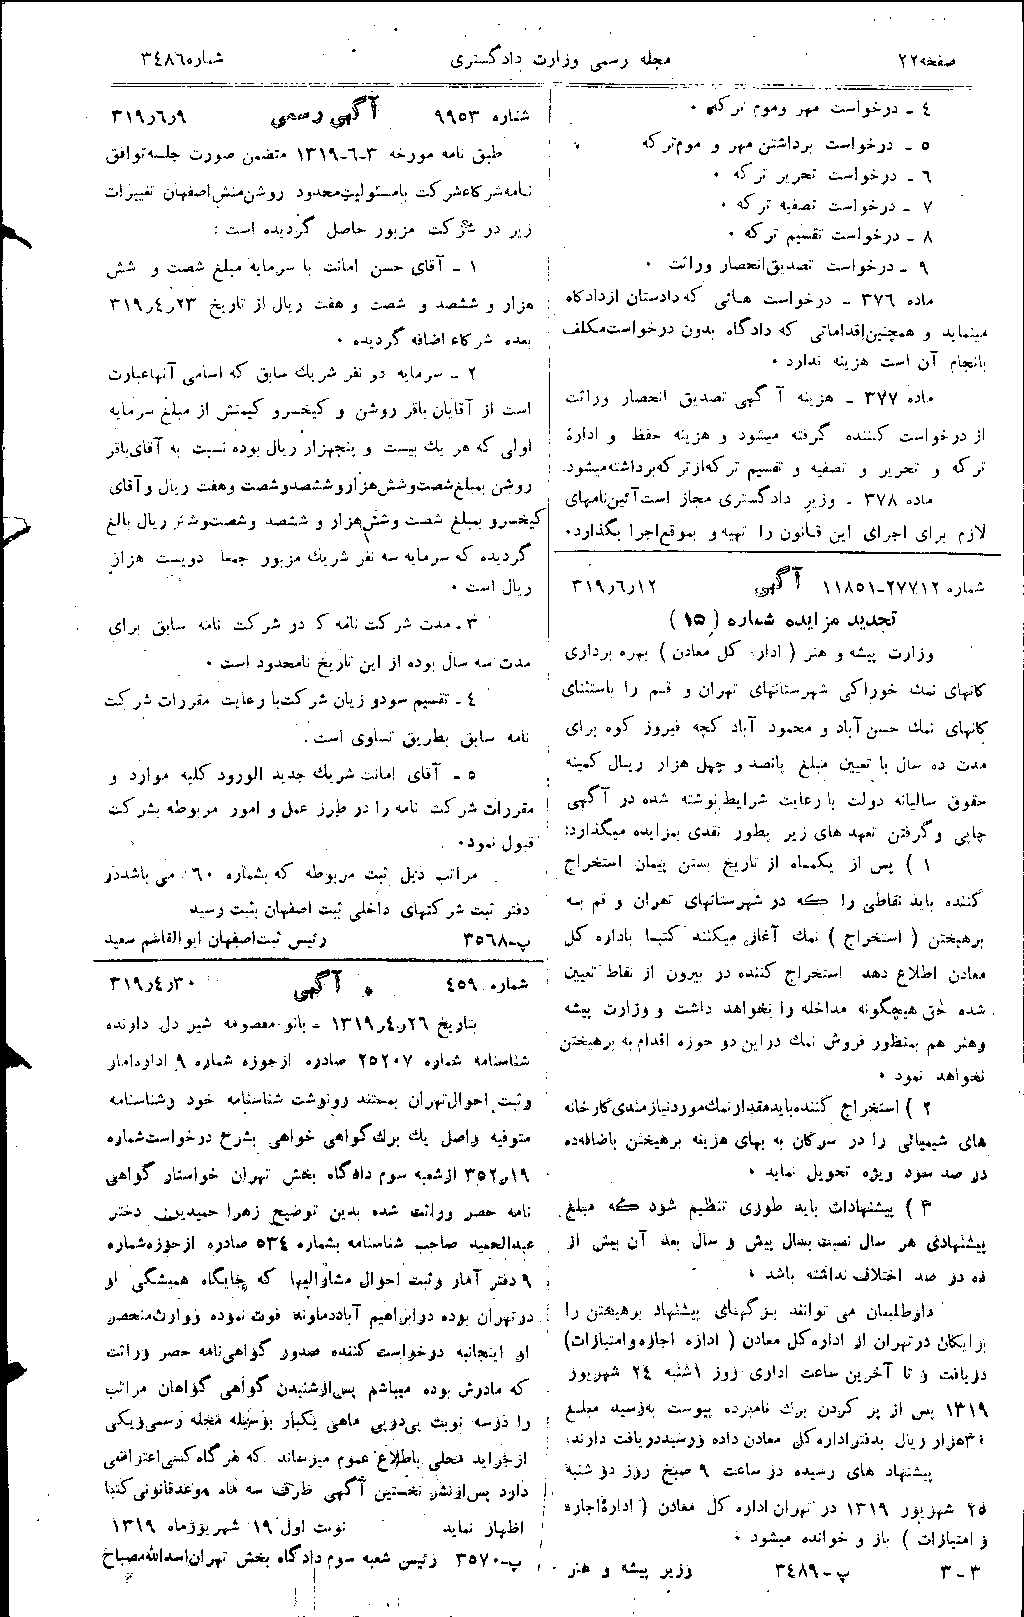 صفحه ۲۲
مجله رسمی وزارت دادگستری
شماره ۳٤۸٦
٤ ـ درخواست مهر وموم ترکه ۰
۵ ـ درخواست برداشتن مهر و موم ترکه
٦ ـ درخواست تحریر ترکه ۰
۷ ـ درخواست تصفیه ترکه ۰
۸ ـ درخواست تقسیم ترکه ۰
۹ ـ درخواست تصدیق انحصار وراثت ۰
ماده ۳۷٦ ـ درخواست هائی که دادستان از دادگاه
مینماید و همچنین اقداماتی که دادگاه بدون درخواست مکلف
بانجام آن است هزینه ندارد ۰
ماده ۳۷۷ ـ هزینه آگهی تصدیق انحصار وراثت
از درخواست کننده گرفته میشود و هزینه حفظ و ادارۀ
ترکه و تحریر و تصفیه و تقسیم ترکه از ترکه برداشته میشود.
ماده ۳۷۸ ـ وزیر دادگستری مجاز است آئین نامهای
لازم برای اجرای این قانون را تهیه و بموقع اجرا بگذارد۰
شماره ۲۷۷۱۲-۱۱۸۵۱ آگهی ۳۱۹٫٦٫۱۲
تجدید مزایده شماره (۱۵)
وزارت پیشه و هنر ( اداره کل معادن ) بهره برداری
کانهای نمك خوراکی شهرستانهای تهران و قم را باستثنای
کانهای نمك حسن آباد و محمود آباد کچه فیروز کوه برای
مدت ده سال با تعیین مبلغ پانصد و چهل هزار ریال کمینه
حقوق سالیانه دولت با رعایت شرایط نوشته شده در آگهی
چاپی و گرفتن تعهد های زیر بطور نقدی بمزایده میگذارد:
۱ ) پس از یکماه از تاریخ بستن پیمان استخراج
کننده باید نقاطی را که در شهرستانهای تهران و قم به
برهیختن ( استخراج ) نمك آغاز میکنند کتبا باداره کل
معادن اطلاع دهد استخراج کننده در بیرون از نقاط تعیین
شده حق هیچگونه مداخله را نخواهد داشت و وزارت پیشه
وهنر هم بمنظور فروش نمك دراین دو حوزه اقدام به برهیختن
نخواهد نمود ۰
۲ ) استخراج کننده باید مقدار نمك مورد نیازمندی کارخانه
های شیمیائی را در سرکان به بهای هزینه برهیختن باضافه ده
در صد سود ویژه تحویل نماید ۰
۳ ) پیشنهادات باید طوری تنظیم شود که مبلغ
پیشنهادی هر سال نسبت بسال پیش و سال بعد آن بیش از
ده در صد اختلاف نداشته باشد ۰
داوطلبان می توانند برگهای پیشنهاد برهیختن را
برایگان در تهران از اداره کل معادن ( اداره اجازه و امتیازات)
دریافت و تا آخرین ساعت اداری روز ۱شنبه ۲٤ شهریور
۱۳۱۹ پس از پر کردن برك نامبرده پیوست به رسید مبلغ
هزار ریال بدفتر اداره کل معادن داده و رسید دریافت دارند.
پیشنهاد های رسیده در ساعت ۹ صبح روز دو شنبه
۲۵ شهریور ۱۳۱۹ در تهران اداره کل معادن ( ادارۀ اجاره
و امتیازات ) باز و خوانده میشود ۰
۳ ـ ۳ پ-۳٤۸۹ وزیر پیشه و هنر
شماره ۹۹۵۳ آگهی رسمی ۳۱۹٫٦٫۹
طبق نامه مورخه ۳-٦-۱۳۱۹ متضمن صورت جلسه توافق
نامه شرکاء شرکت بامسئولیت محدود روشن منش اصفهان تغییرات
زیر در شرکت مزبور حاصل گردیده است :
۱ ـ آقای حسن امانت با سرمایه مبلغ شصت و شش
هزار و ششصد و شصت و هفت ریال از تاریخ ۳۱۹٫٤٫۲۳
بعده شرکاء اضافه گردیده ۰
۲ ـ سرمایه دو نفر شریك سابق که اسامی آنها عبارت
است از آقایان باقر روشن و کیخسرو کیمنش از مبلغ سرمایه
اولی که هر یك بیست و پنجهزار ریال بوده نسبت به آقای باقر
روشن بمبلغ شصت وشش هزار و ششصد و شصت وهفت ریال و آقای
کیخسرو بمبلغ شصت وشش هزار و ششصد وشصت وشش ریال بالغ
گردیده که سرمایه سه نفر شریك مزبور جمعا دویست هزار
ریال است ۰
۳ـ مدت شرکت نامه که در شرکت نامه سابق برای
مدت سه سال بوده از این تاریخ نامحدود است ۰
٤ ـ تقسیم سود و زیان شرکت با رعایت مقررات شرکت
نامه سابق بطریق تساوی است.
۵ ـ آقای امانت شریك جدید الورود کلیه موارد و
مقررات شرکت نامه را در طرز عمل و امور مربوطه بشرکت
قبول نمود۰
مراتب ذیل ثبت مربوطه که بشماره ٦۰ می باشد در
دفتر ثبت شرکتهای داخلی ثبت اصفهان بثبت رسید
پ-۳۵٦۸ رئیس ثبت اصفهان ابوالقاسم سعید
شماره ٤۵۹ آگهی ۳۱۹٫٤٫۳۰
بتاریخ ۲٦٫٤٫۱۳۱۹ ـ بانو معصومه شیر دل دارنده
شناسنامه شماره ۲۵۲۰۷ صادره از حوزه شماره ۹ اداره آمار
وثبت احوال تهران بمستند رونوشت شناسنامه خود و شناسنامه
متوفیه واصل یك برك گواهی خواهی بشرح درخواست شماره
۳۵۲٫۱۹ از شعبه سوم دادگاه بخش تهران خواستار گواهی
نامه حصر وراثت شده بدین توضیح زهرا حمیدیون دختر
عبدالحمید صاحب شناسنامه بشماره ۵۳٤ صادره از حوزه شماره
۹ دفتر آمار وثبت احوال مشارالیها که جایگاه همیشگی او
در تهران بوده در ابراهیم آباد دماوند فوت نموده و وارث منحصر
او اینجانبه درخواست کننده صدور گواهی نامه حصر وراثت
که مادرش بوده میباشم پس از شنیدن گواهی گواهان مراتب
را درسه نوبت پی در پی ماهی یکبار بوسیله مجله رسمی و یکی
از جراید محلی باطلاع عموم میرساند که هر گاه کسی اعتراضی
دارد پس از نشر نخستین آگهی ظرف سه ماه موعد قانونی کتبا
اظهار نماید نوبت اول ۱۹ شهریور ماه ۱۳۱۹
پ-۳۵۷۰ رئیس شعبه سوم دادگاه بخش تهران اسدالله مصباح